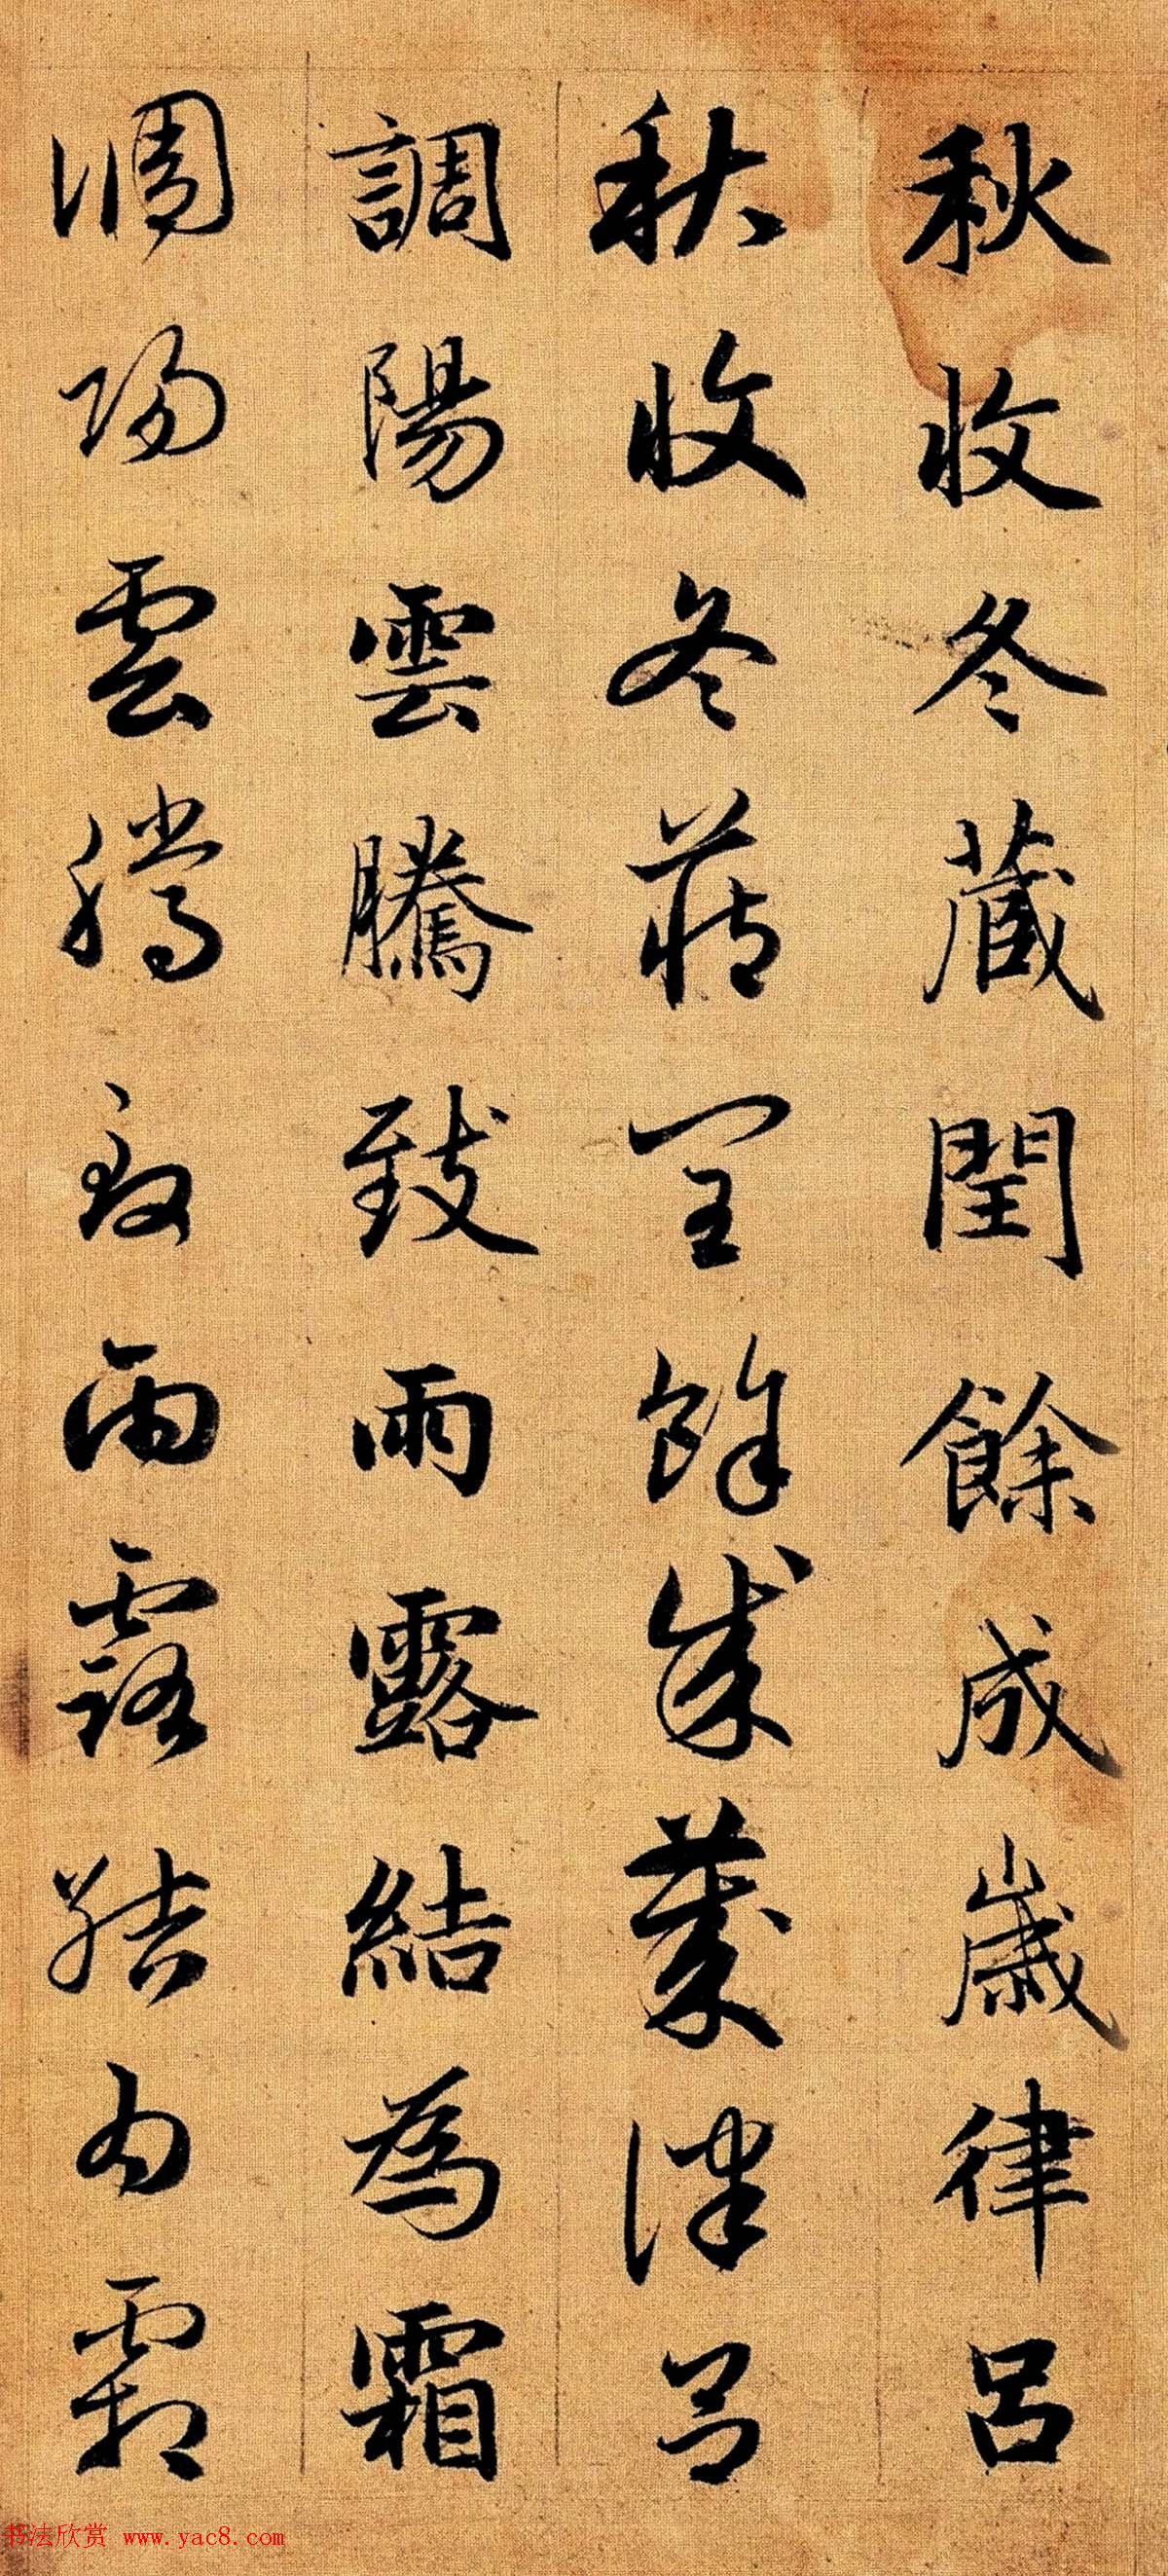 秋收冬藏閏餘成歲律呂
秋收冬藏閏餘成歲律呂
調陽雲騰致雨露結為霜
調陽雲騰致雨露結為霜
书法欣赏 www.yac8.com